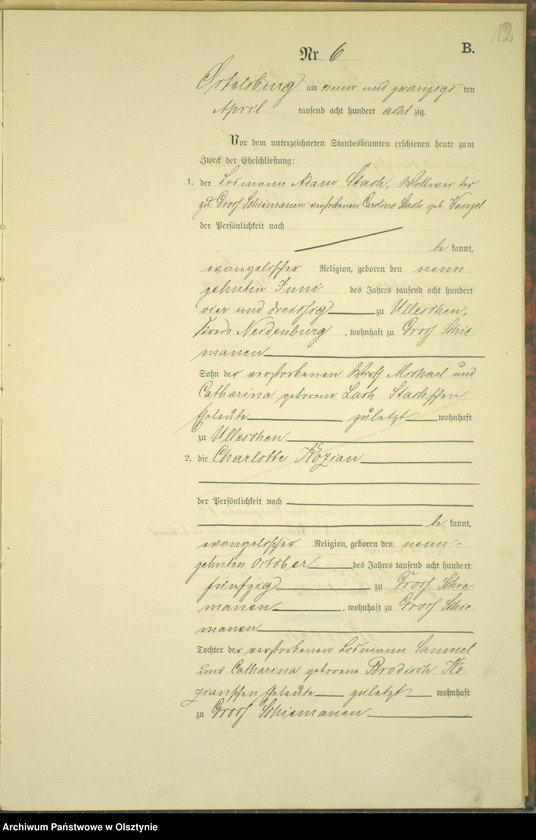 12
Nr. 6
B.
Ortelsburg am neun und zwanzigsten
April tausend acht hundert achtzig.
Vor dem unterzeichneten Standesbeamten erschienen heute zum
Zweck der Eheschließung:
1. der Losmann Adam Stach, Wittwer der
zu Groß Schiemanen verstorbenen Caroline Stach geb. Wenzel
der Persönlichkeit nach
bekannt,
evangelischer Religion, geboren den neun
zehnten Juni des Jahres tausend acht hundert
vier und dreißig zu Ulleschen,
Kreis Neidenburg, wohnhaft zu Groß Schie
manen
Sohn der verstorbenen Michael und
Catharina geborene Lach Stachschen
Eheleute zuletzt wohnhaft
zu Ulleschen
2. die Charlotte Kozian
der Persönlichkeit nach
bekannt,
evangelischer Religion, geboren den neun-
zehnten October des Jahres tausend acht hundert
fünfzig zu Groß Schie
manen, wohnhaft zu Groß Schie
manen
Tochter der verstorbenen Losmann Samuel
und Catharina geborene Brodisch Ko
zianschen Eheleute zuletzt wohnhaft
zu Groß Schiemanen
Archiwum Państwowe w Olsztynie